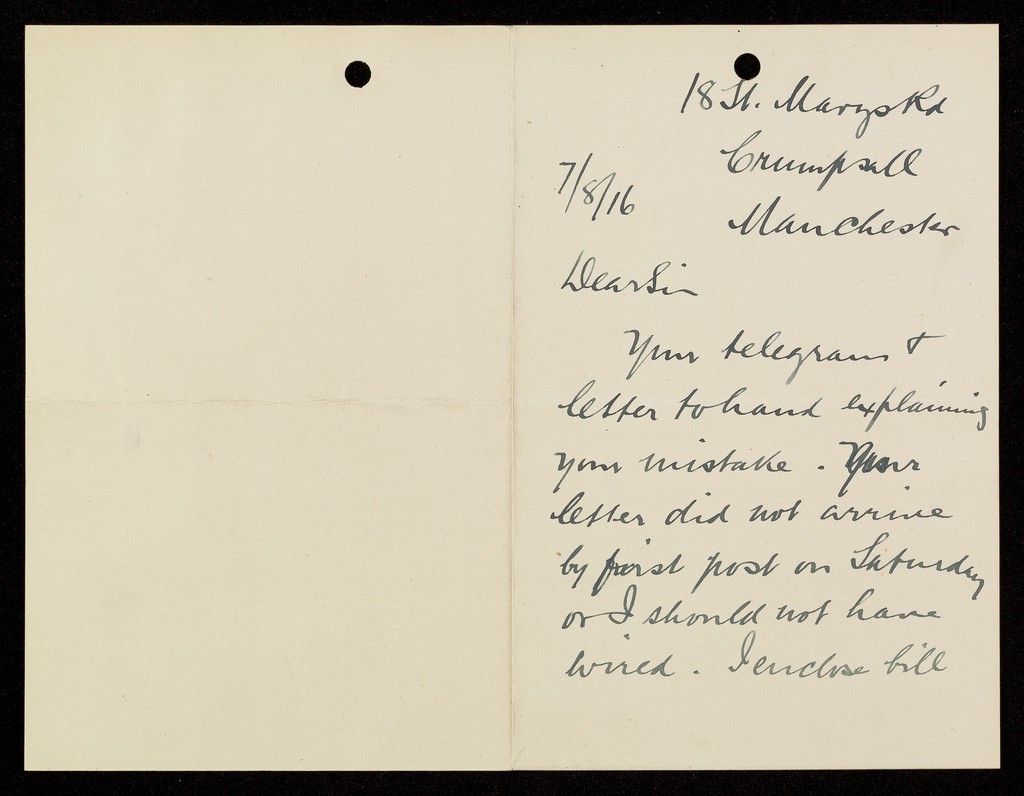 18 St. Marys Rd
Crumpsall
7/8/16
Manchester
Dear Sir
Your telegram &
letter to hand explaining
your mistake. Your
letter did not arrive
by first post on Saturday
or I should not have
wired. I enclose bill